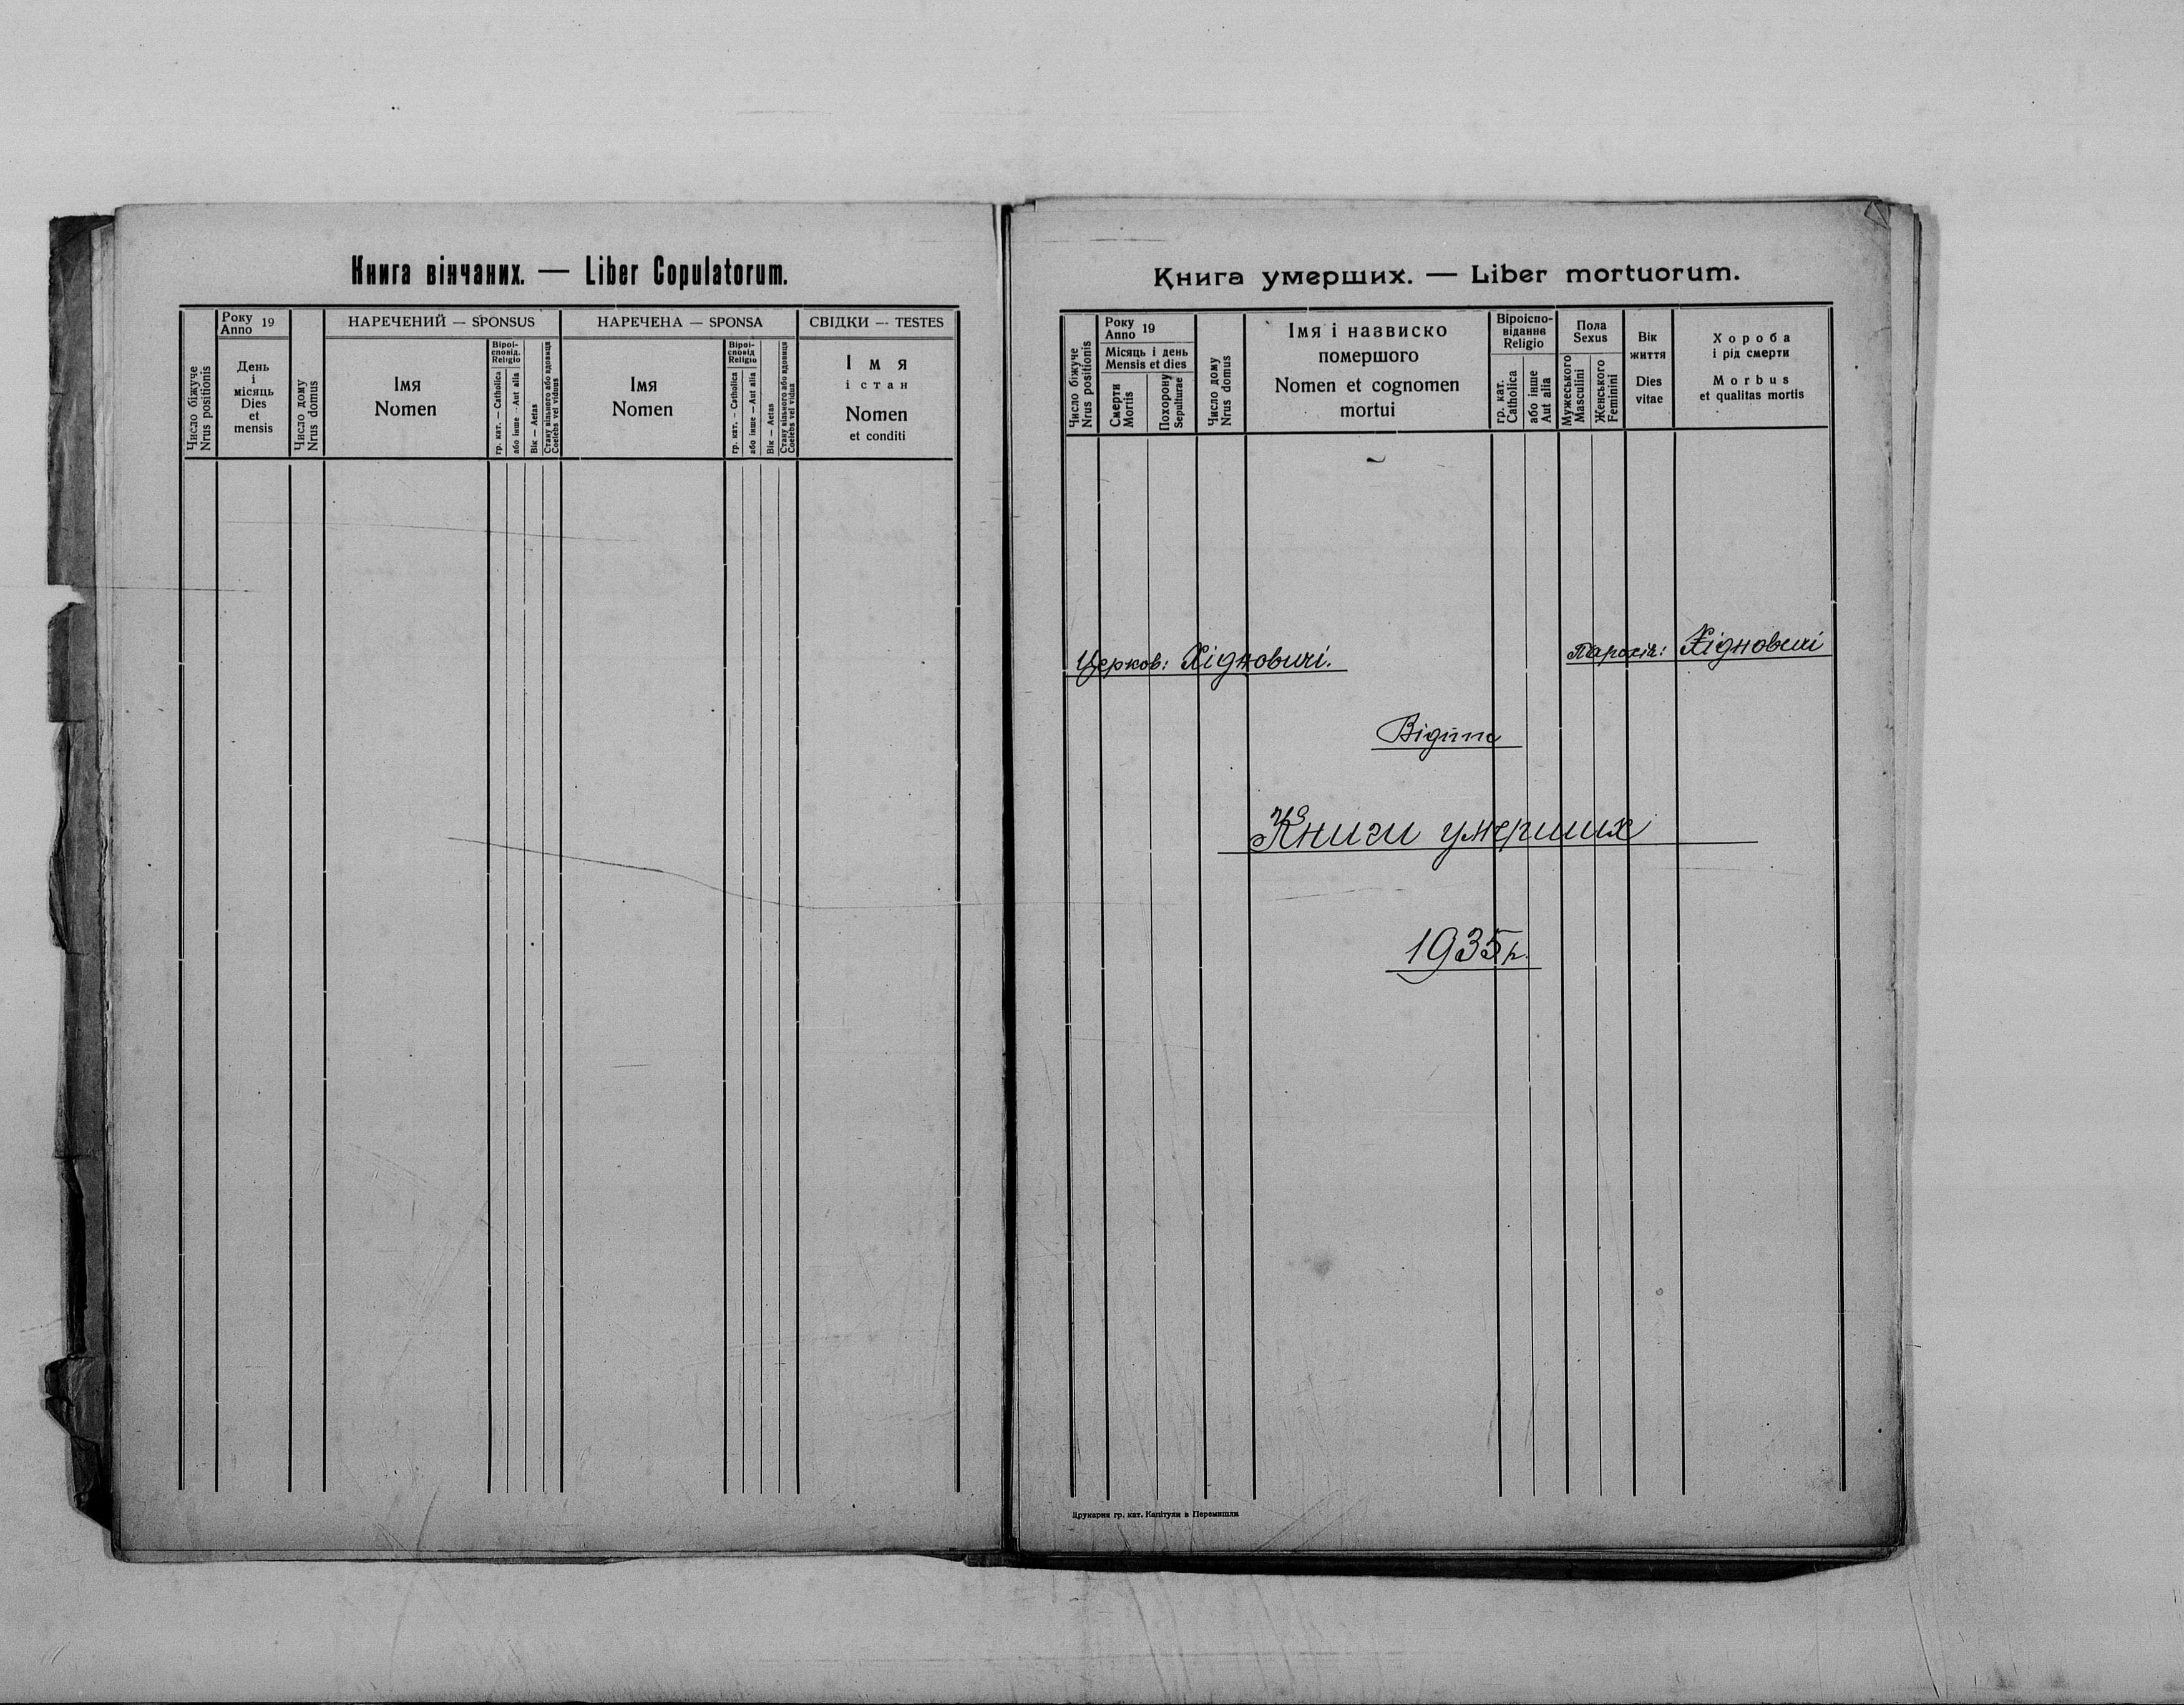 Книга вінчаних. — Liber Copulatorum.
Число біжуче
Nrus positionis
Року
Anno 19
День
і
місяць
Dies
et
mensis
Число дому
Nrus domus
НАРЕЧЕНИЙ — SPONSUS
Імя
Nomen
Віроі-
сповід.
Religio
гр. кат. — Catholica
або інше — Aut alia
Вік — Aetas
Стану вільного або вдовиця
Coelebs vel viduus
НАРЕЧЕНА — SPONSA
Імя
Nomen
Віроі-
сповід
Religio
гр. кат. — Catholica
або інше — Aut alia
Вік — Aetas
Стану вільного або вдовиця
Coelebs vel vidua
СВІДКИ — TESTES
Імя
і стан
Nomen
et conditi
Книга умерших. — Liber mortuorum.
Число біжуче
Nrus positionis
Року
Anno 19
Місяць і день
Mensis et dies
Смерти
Mortis
Похорону
Sepulturae
Число дому
Nrus domus
Імя і назвиско
помершого
Nomen et cognomen
mortui
Віроіспо-
відання
Religio
гр. кат.
Catholica
або інше
Aut alia
Пола
Sexus
Мужеського
Masculini
Женського
Feminini
Вік
життя
Dies
vitae
Хороба
і рід смерти
Morbus
et qualitas mortis
Церков: Хідновичі. Парохія: Хідновичі
Відпис
Книги умерших
1935 р.
Друкарня гр. кат. Капітули в Перемишли